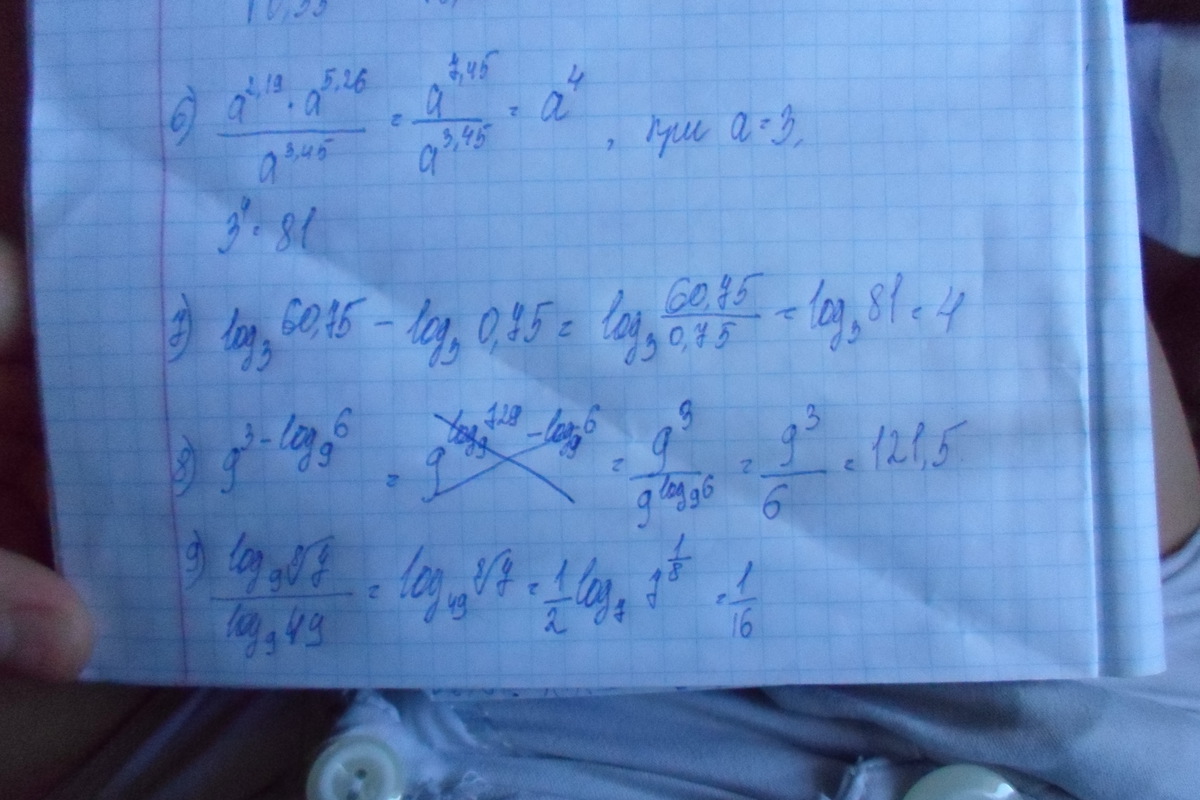 6) a^2,19 · a^5,26 / a^3,45 = a^7,45 / a^3,45 = a^4 , при a = 3,
3^4 = 81
7) log_3 60,75 - log_3 0,75 = log_3 60,75/0,75 = log_3 81 = 4
8) 9^(3 - log_9 6) = 9^(log_9 729 - log_9 6) = 9^3 / 9^(log_9 6) = 9^3 / 6 = 121,5
9) log_9 ⁸√7 / log_9 49 = log_49 ⁸√7 = 1/2 log_7 7^(1/8) = 1/16